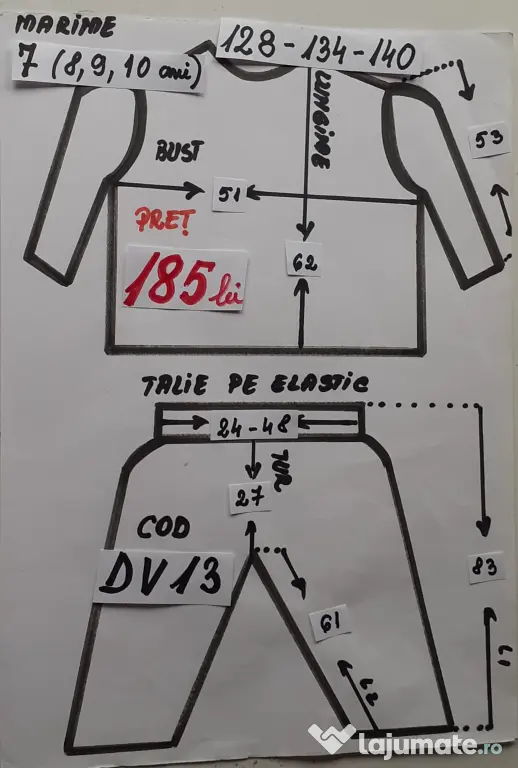 MARIME
7 (8, 9, 10 ani)
128-134-140
LUNGIME
53
BUST
51
PREȚ
185 lei
62
TALIE PE ELASTIC
24-48
TUR
27
COD
DV13
83
61
L1
L2
lajumate.ro